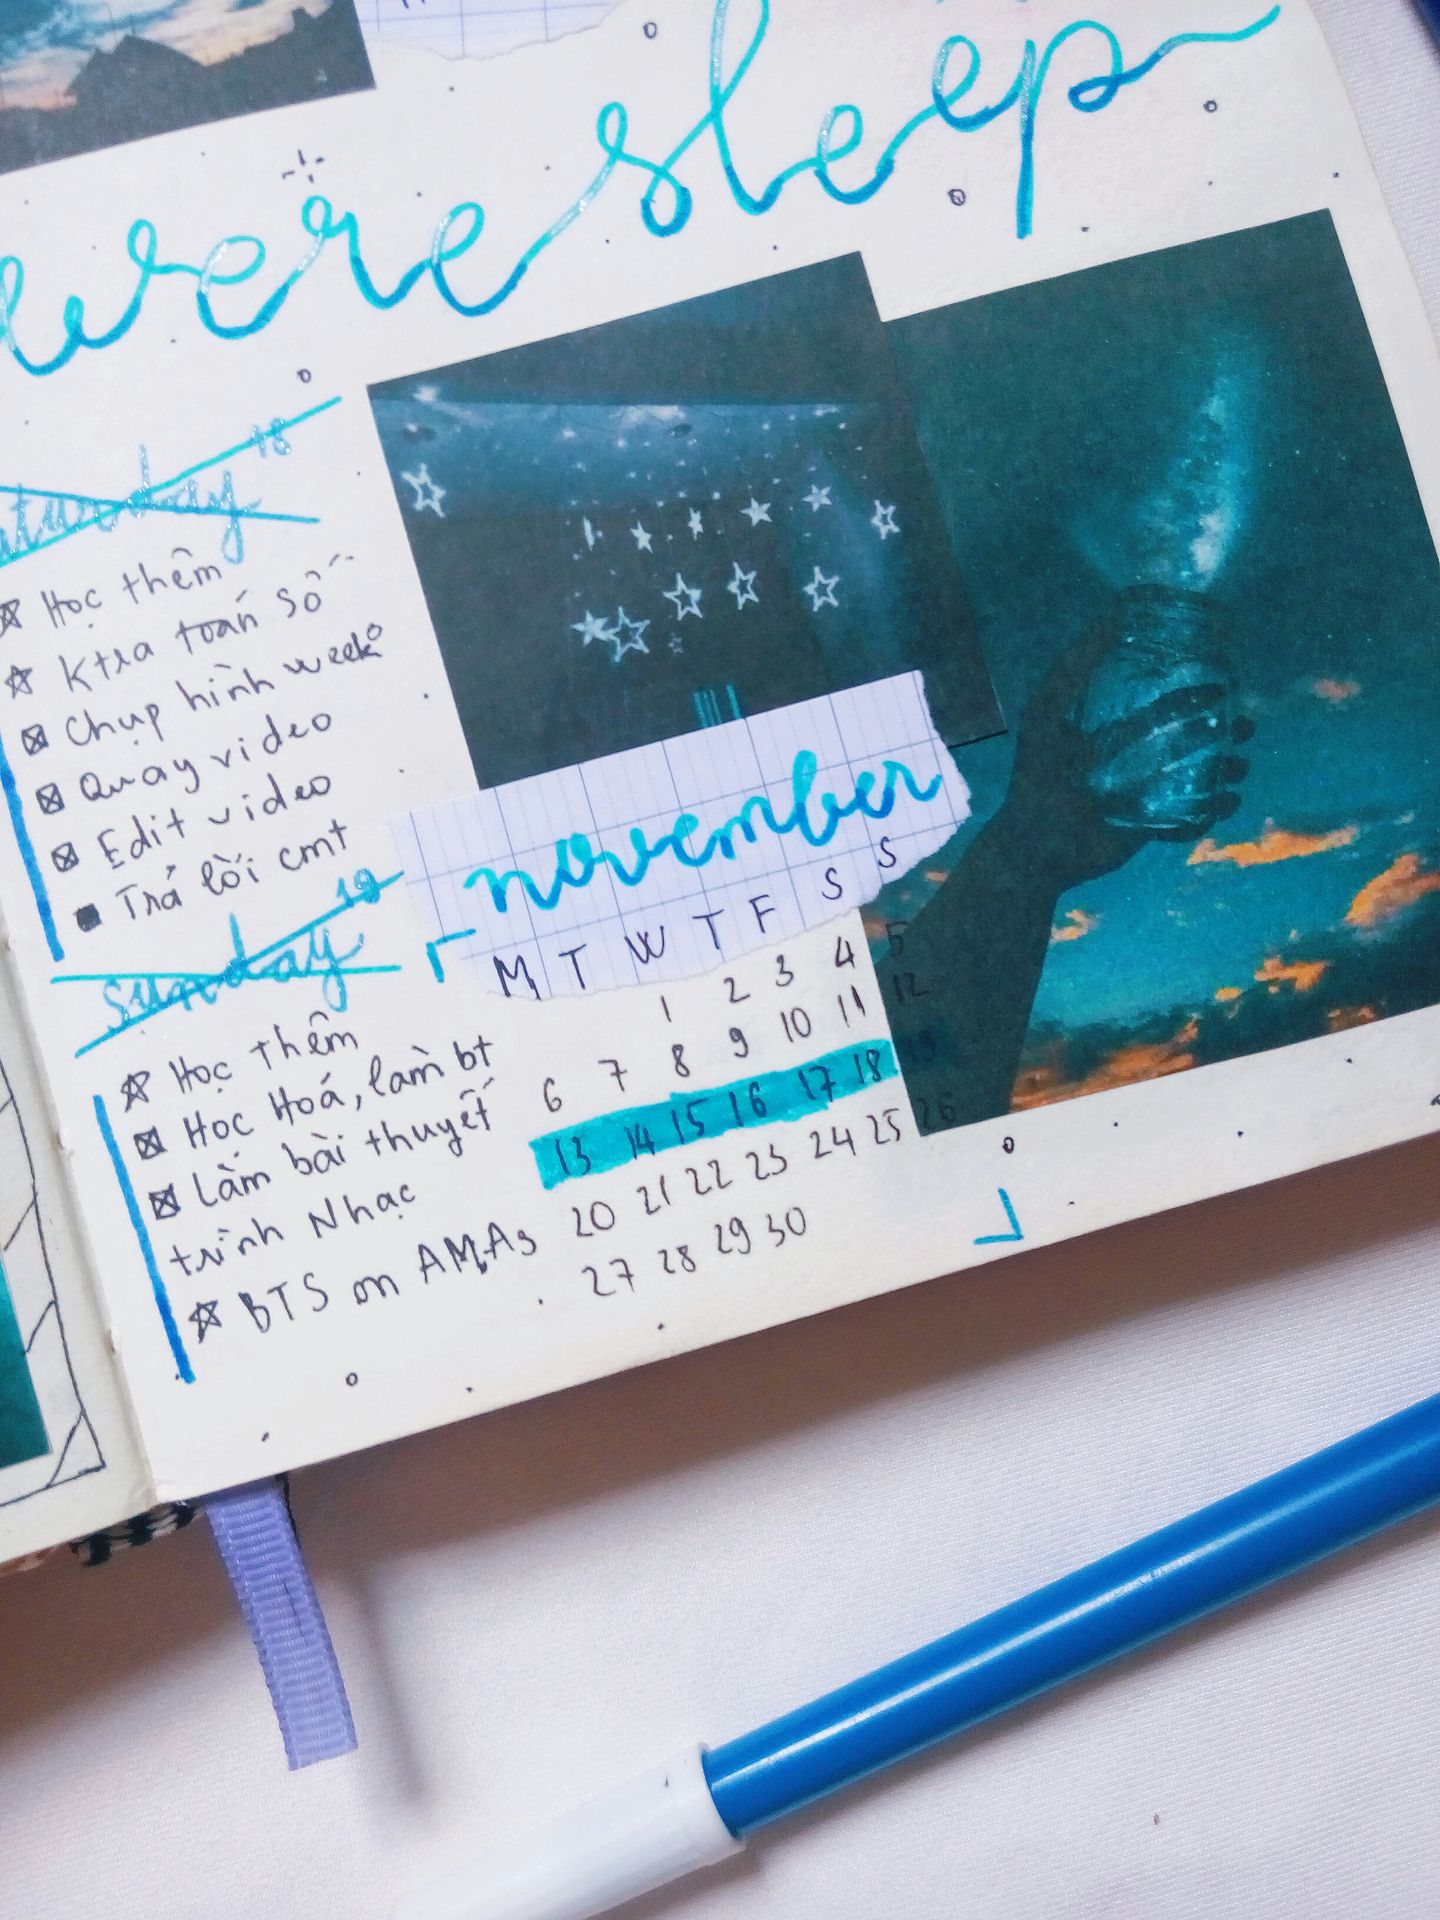 were sleep
Saturday 18
Học thêm
Ktra toán số
Chụp hình week
Quay video
Edit video
Trả lời cmt
sunday 19
Học thêm
Học Hoá, làm bt
Làm bài thuyết
trình Nhạc
BTS on AMAs
november
M T W T F S S
1 2 3 4 5
6 7 8 9 10 11 12
13 14 15 16 17 18 19
20 21 22 23 24 25 26
27 28 29 30